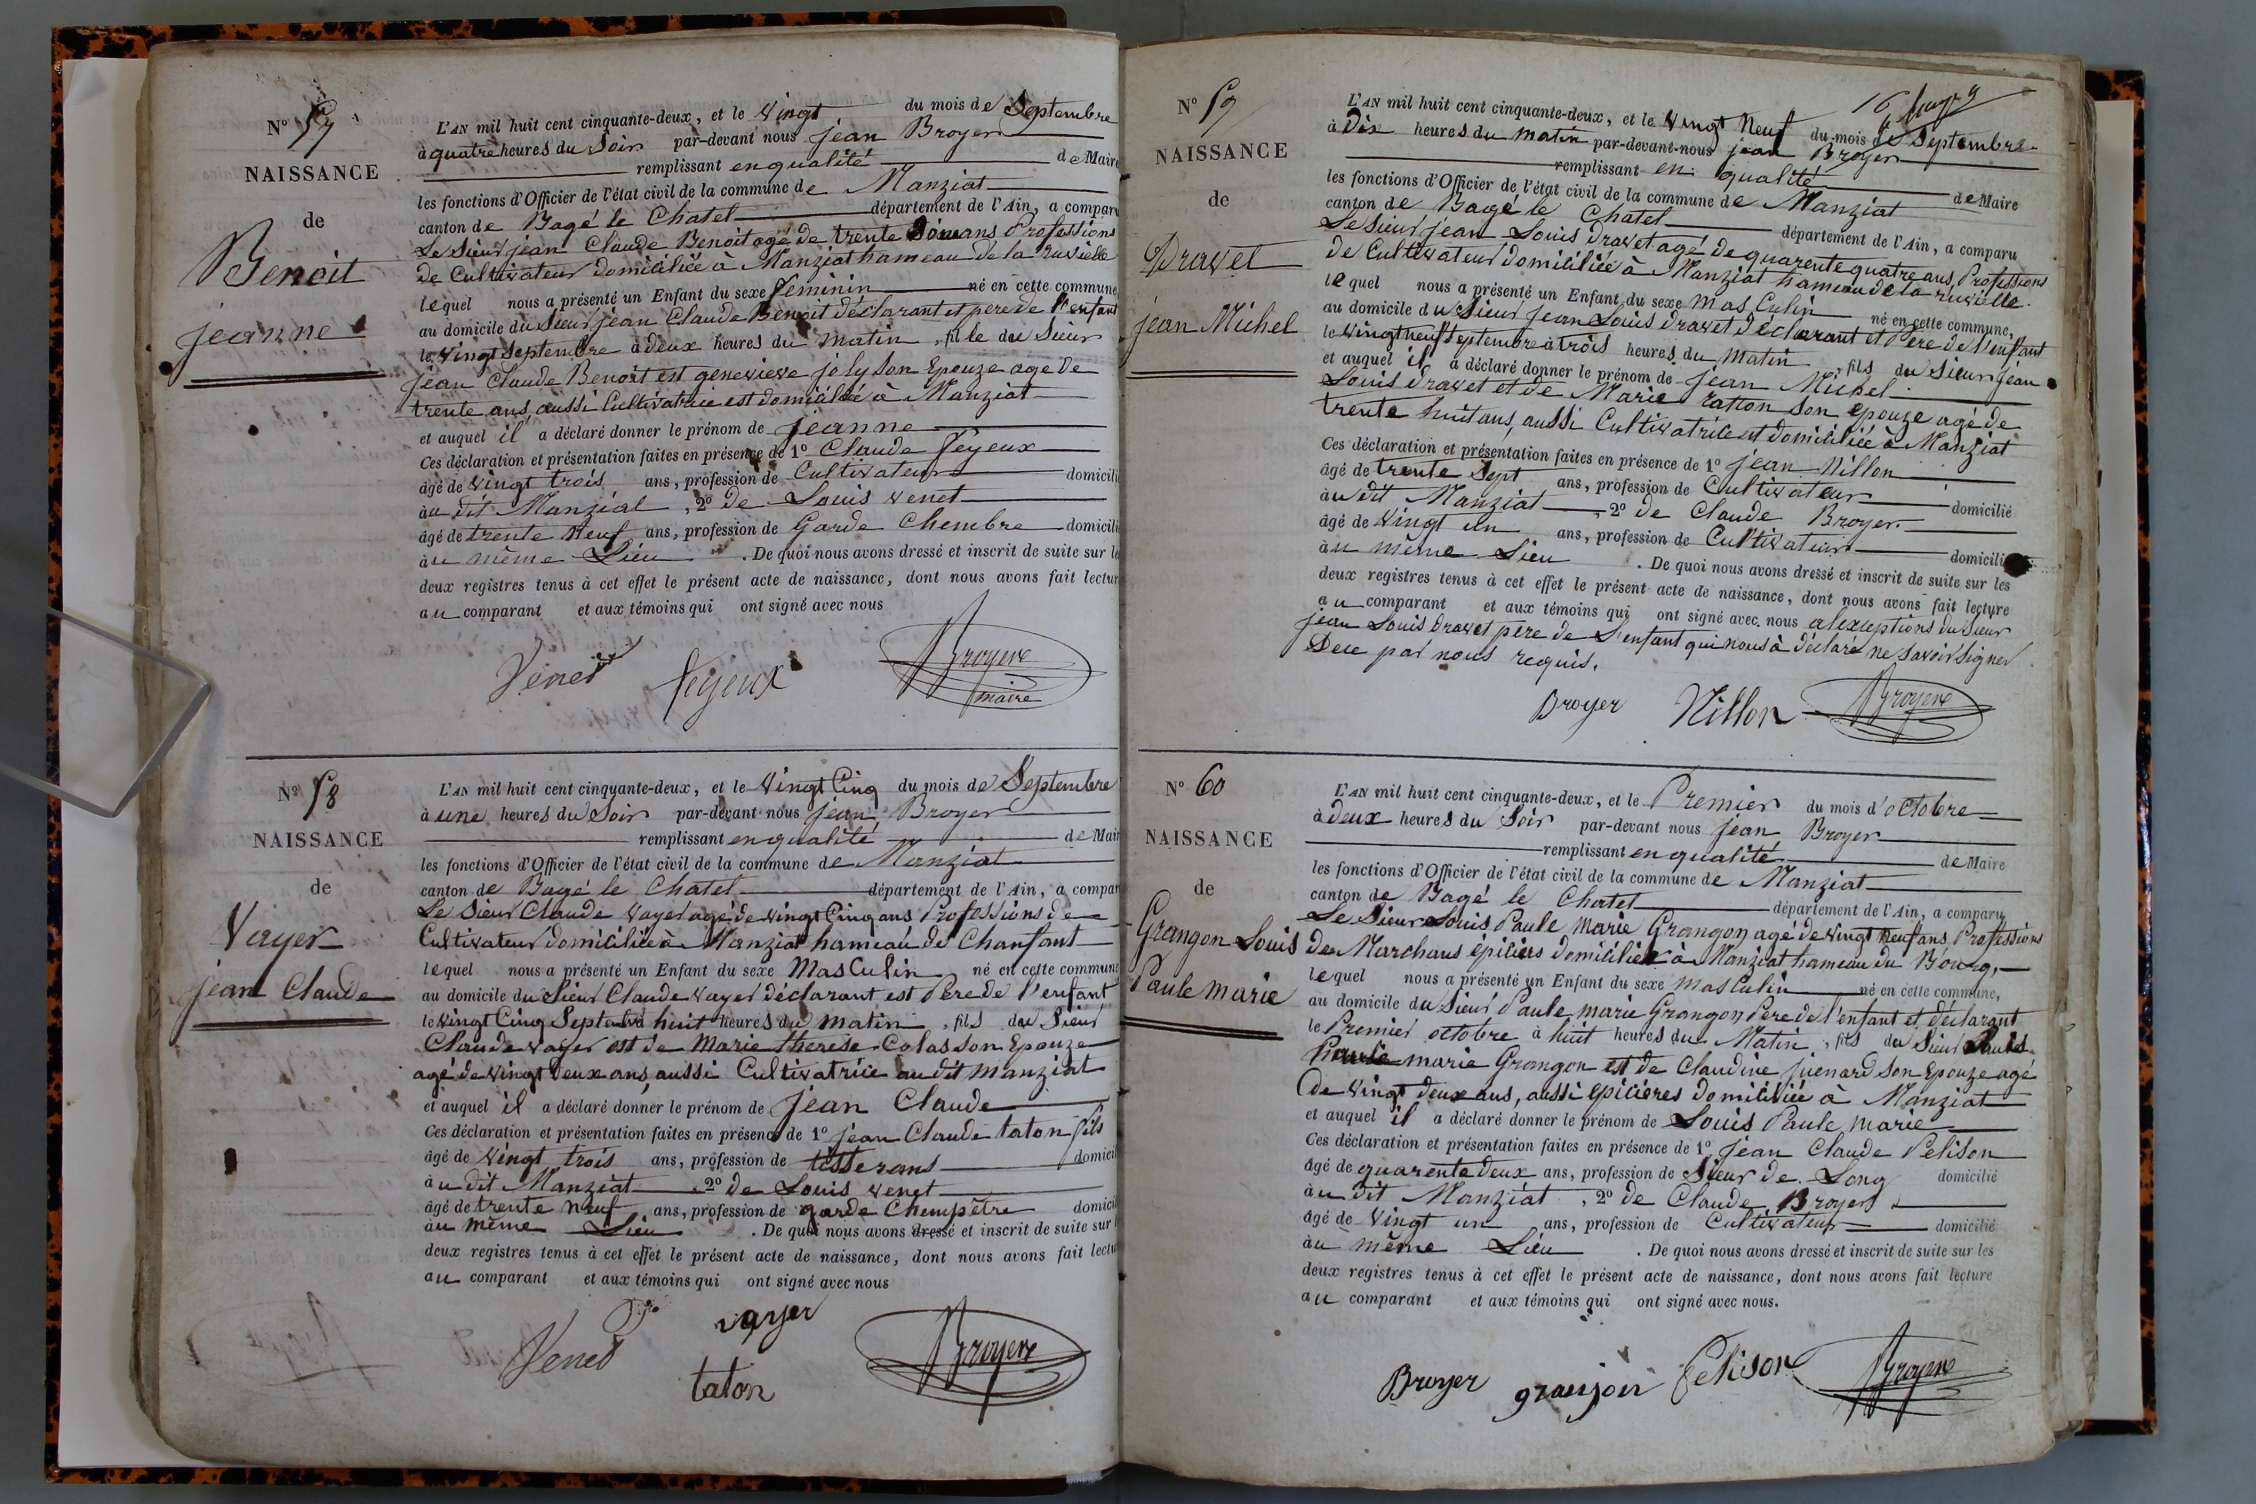 N° 57
NAISSANCE
de
Benoit
jeanne
L'AN mil huit cent cinquante-deux, et le Vingt du mois de Septembre
à quatre heures du Soir par-devant nous jean Broyer
remplissant en qualité de Maire
les fonctions d'Officier de l'état civil de la commune de Manziat
canton de Bagé le Chatel département de l'Ain, a comparu
Le Sieur jean Claude Benoit agé de trente ans Professions
de Cultivateur domiciliée à Manziat hameau de la ruvielle
lequel nous a présenté un Enfant du sexe feminin né en cette commune
au domicile du Sieur jean Claude Benoit déclarant et pere de l'enfant
le Vingt Septembre à deux heures du matin, fille du Sieur
jean Claude Benoit est genevieve joly son Epouze age de
trente ans, aussi Cultivatrice est domiciliée à Manziat
et auquel il a déclaré donner le prénom de jeanne
Ces déclaration et présentation faites en présence de 1° Claude Feyeux
âgé de vingt trois ans, profession de Cultivateur domicilié
au dit Manziat, 2° de Louis Venet
âgé de trente Neuf ans, profession de Garde Chembre domicilié
au même Lieu. De quoi nous avons dressé et inscrit de suite sur le
deux registres tenus à cet effet le présent acte de naissance, dont nous avons fait lectur
au comparant et aux témoins qui ont signé avec nous
Venet feyeux Broyer
maire
N° 58
NAISSANCE
de
Vayer
jean Claude
L'AN mil huit cent cinquante-deux, et le Vingt Cinq du mois de Septembre
à une heures du Soir par-devant nous jean Broyer
remplissant en qualité de Mair
les fonctions d'Officier de l'état civil de la commune de Manziat
canton de Bagé le Chatel département de l'Ain, a compar
Le Sieur Claude Vayer agé de vingt Cinq ans Professions de
Cultivateur domiciliée à Manziat hameau de Chanfant
lequel nous a présenté un Enfant du sexe MasCulin né en cette commune
au domicile du Sieur Claude Vayer déclarant est Pere de l'enfant
le Vingt Cinq Septembre huit heures du matin, fils du Sieur
Claude Vayer est de Marie therese Colas son Epouze
agé de vingt deux ans, aussi Cultivatrice au dit manziat
et auquel il a déclaré donner le prénom de jean Claude
Ces déclaration et présentation faites en présence de 1° jean Claude taton fils
âgé de vingt trois ans, profession de tisserans domicil
au dit Manziat, 2° de Louis Venet
âgé de trente neuf ans, profession de garde Chempètre domicil
au même Lieu. De quoi nous avons dressé et inscrit de suite sur l
deux registres tenus à cet effet le présent acte de naissance, dont nous avons fait lectu
au comparant et aux témoins qui ont signé avec nous
Venet vayer
taton Broyer
N° 59
NAISSANCE
de
Dravet
jean Michel
L'AN mil huit cent cinquante-deux, et le Vingt Neuf du mois de Septembre
à Dix heures du matin par-devant-nous jean Broyer
remplissant en qualité de Maire
les fonctions d'Officier de l'état civil de la commune de Manziat
canton de Bagé le Chatel département de l'Ain, a comparu
Le Sieur jean Louis dravet agé de quarente quatre ans, Professions
de Cultivateur domiciliée à Manziat hameau de la ruvielle.
lequel nous a présenté un Enfant du sexe MasCulin né en cette commune,
au domicile du Sieur jean Louis dravet déclarant et Père de l'enfant
le Vingt neuf Septembre à trois heures du Matin, fils du Sieur jean
et auquel il a déclaré donner le prénom de jean Michel
Louis dravet et de Marie ratton son epouze agé de
trente huit ans, aussi Cultivatrice est domiciliée à Manziat
Ces déclaration et présentation faites en présence de 1° jean Nillon
âgé de trente Sept ans, profession de Cultivateur
au dit Manziat, 2° de Claude Broyer domicilié
âgé de Vingt un ans, profession de Cultivateur
au même Lieu domicili
. De quoi nous avons dressé et inscrit de suite sur les
deux registres tenus à cet effet le présent acte de naissance, dont nous avons fait lecture
au comparant et aux témoins qui ont signé avec nous alexceptions du Sieur
jean Louis dravet pere de l'enfant qui nous à déclaré ne savoir signer
Dece par nous requis.
Broyer Nillon Broyer
N° 60
NAISSANCE
de
Grangon Louis
Paule marie
L'AN mil huit cent cinquante-deux, et le Premier du mois d'octobre
à deux heures du Soir par-devant nous jean Broyer
remplissant en qualité de Maire
les fonctions d'Officier de l'état civil de la commune de Manziat
canton de Bagé le Chatel département de l'Ain, a comparu
Le Sieur Louis Paule Marie Grangon agé de vingt neuf ans, Professions
de Marchans épiciers domiciliée à Manziat hameau du Bourg,
lequel nous a présenté un Enfant du sexe masculin né en cette commune,
au domicile du Sieur Paule marie Grangon Pere de l'enfant et déclarant
le Premier octobre à huit heures du Matin, fils du Sieur Louis
Paule marie Grangon est de Claudine juenard son Epouze agé
de vingt deux ans, aussi épicières domiciliée à Manziat
et auquel il a déclaré donner le prénom de Louis Paule marie
Ces déclaration et présentation faites en présence de 1° jean Claude Pelison
âgé de quarente deux ans, profession de Sieur de Long domicilié
au dit Manziat, 2° de Claude Broyer
âgé de Vingt un ans, profession de Cultivateur domicilié
au même Lieu. De quoi nous avons dressé et inscrit de suite sur les
deux registres tenus à cet effet le présent acte de naissance, dont nous avons fait lecture
au comparant et aux témoins qui ont signé avec nous.
Broyer granjon Pelison Broyer